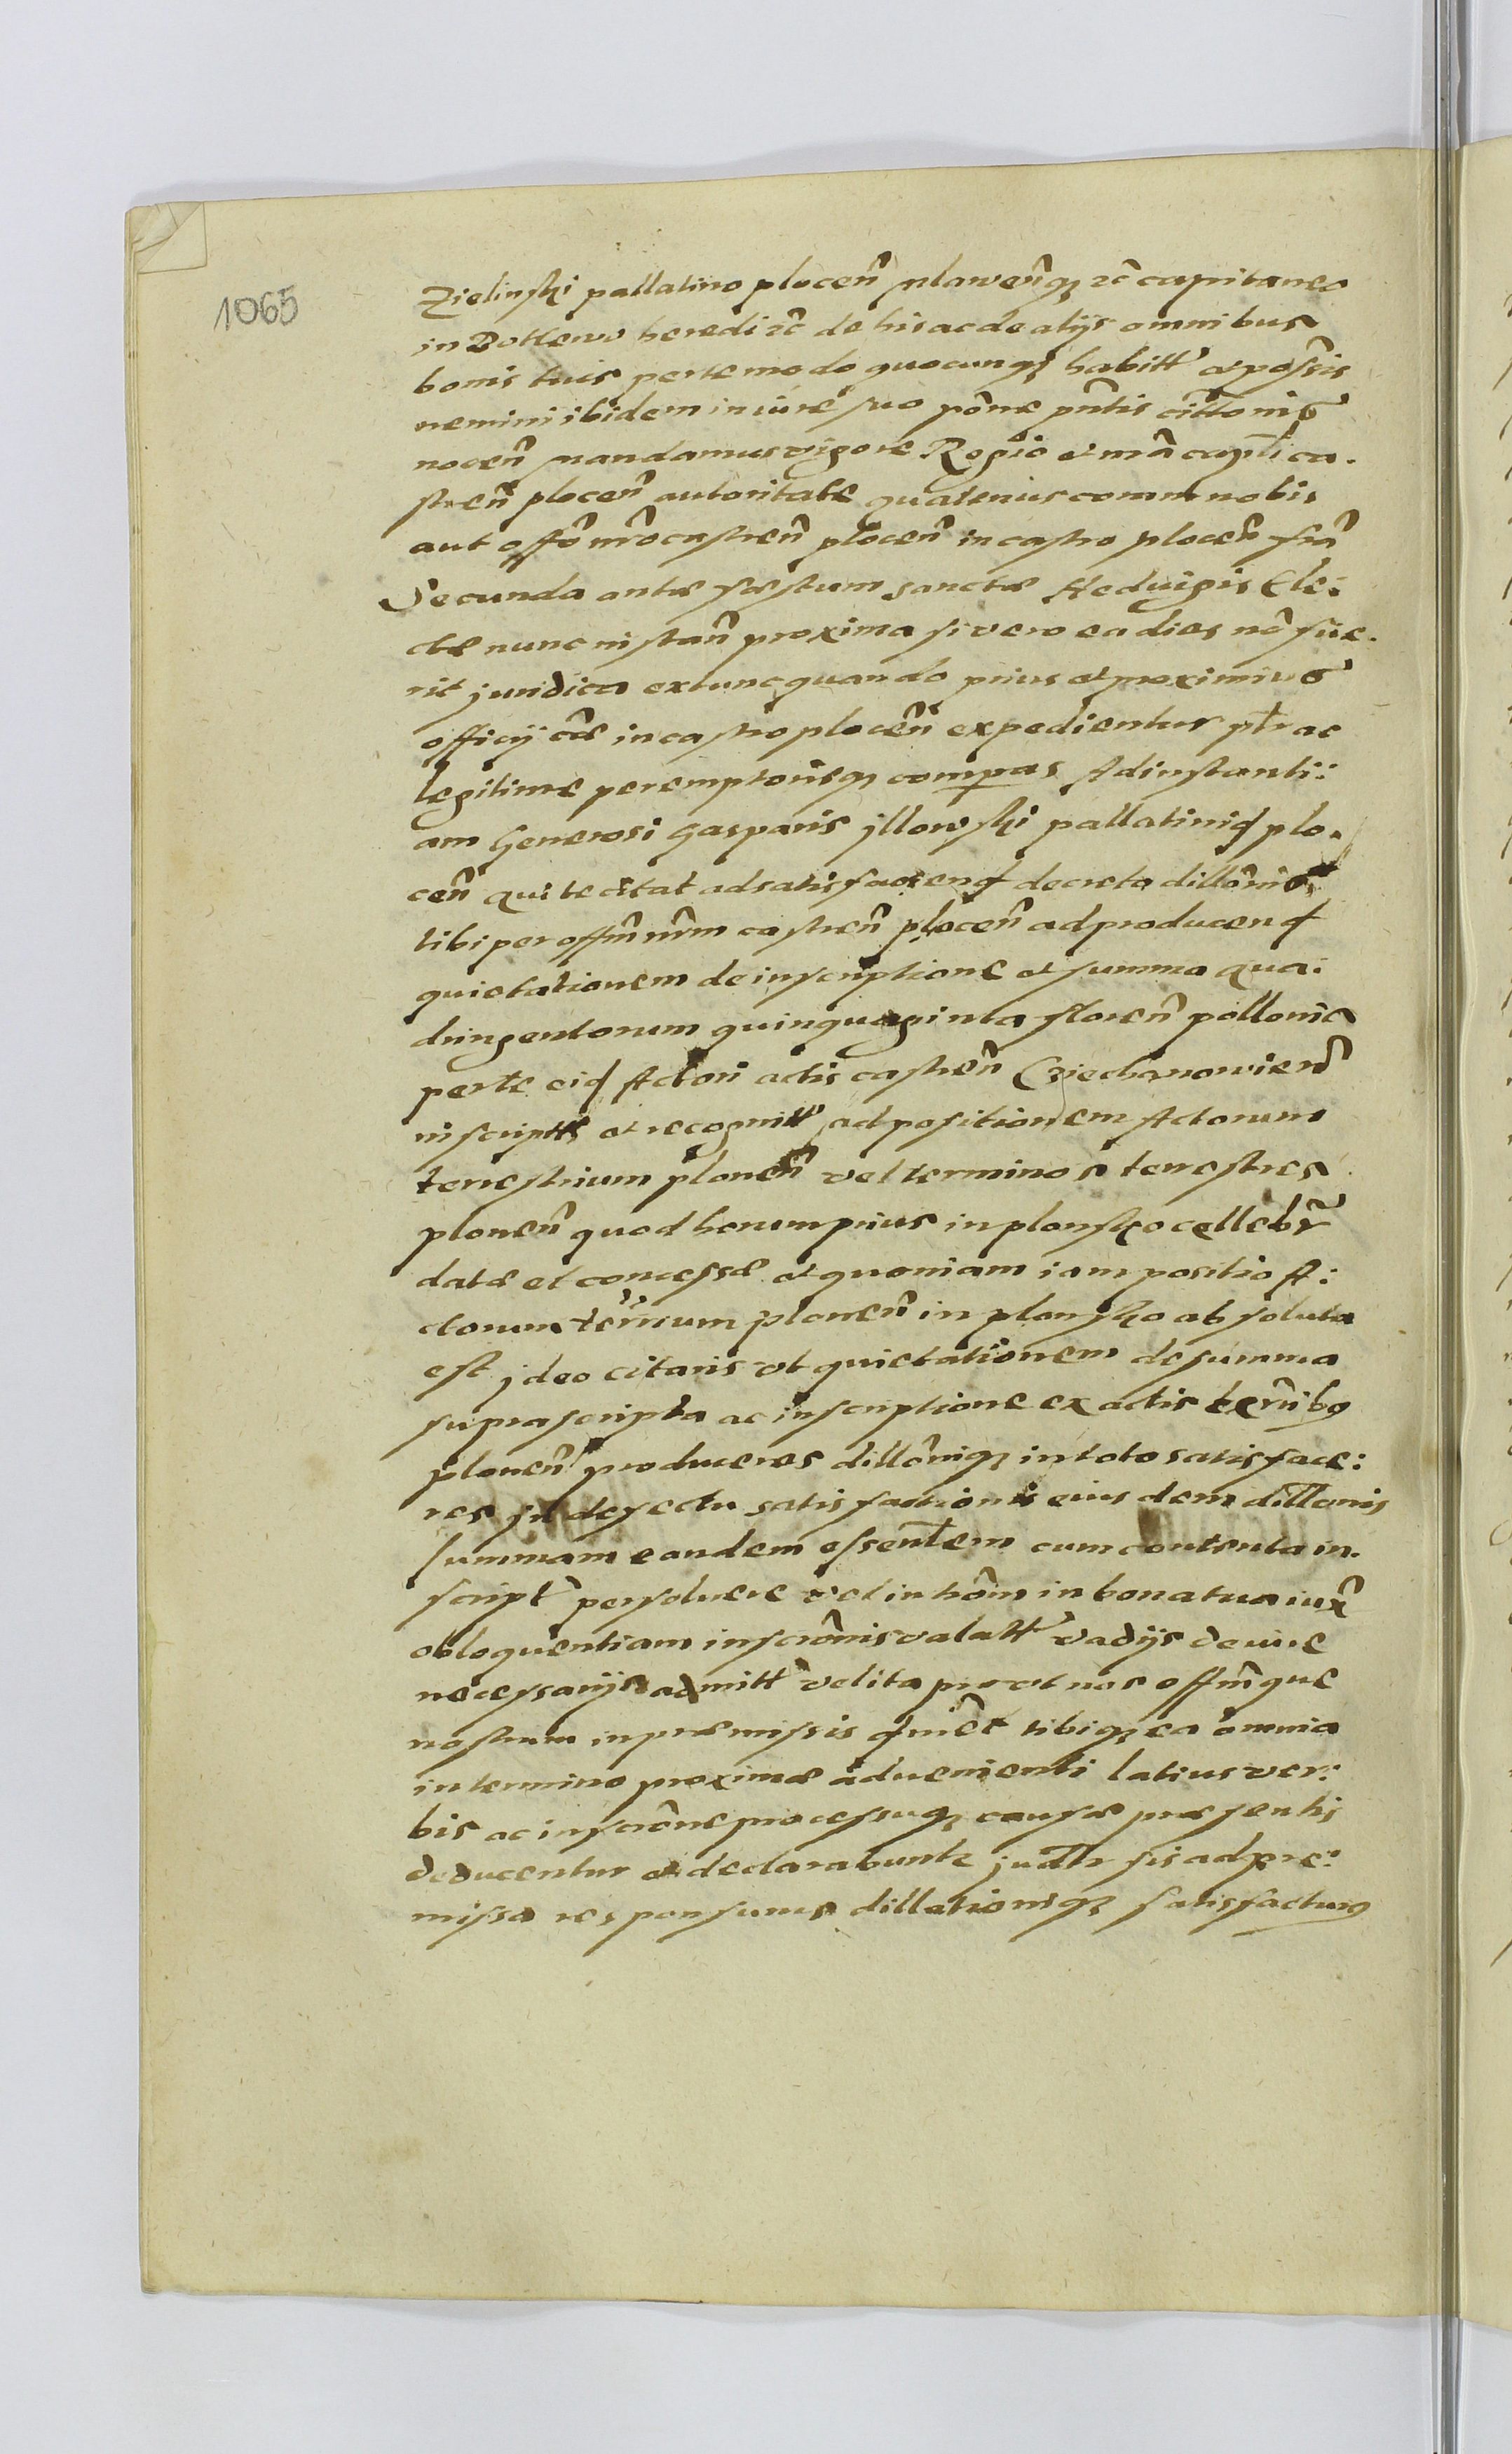 1065
Zielinski pallatino plocen̄ mlawen̄q3 rc̄ capitaneo
in Bottkowo heredi rc̄ de his ac de alijs omnibus
bonis tuis per te modo quocunq3 habitt̉ et poss̄is
nemini ibidem in iure suo pōne pn̄tis citt̄onis
nocen̄ mandamus vigore Regio et mā capt̄i ca.
stren̄ plocen̄ autoritate quatenus coram nobis
aut offō nrō castren̄ plocen̄ in castro plocen̄ fr̄ia
Secunda ante festum sanctæ Heduigis Ele:
ctæ nunc instan̄ proxima si vero ea dies nō fue.
rit juridica extunc quando prius et proximius
officij cāe in castro plocen̄ expedientur pt̄r ac
legitime peremptorieq3 compas Ad instanti:
am Generosi Gasparis jllowski pallatinid plo.
cen̄ qui te citat ad satisfaciend decreto dillōnis
tibi per offm̄ nrm̄ castren̄ plocen̄ ad producend
quietationem de inscriptione et summa qua:
dringentorum quinquaginta floren̄ pollonica
per te eid Actori actis castren̄ Cziechanowien̄
inscriptt̉ et recognitt̉ ad positionem Actorum
terrestrium plonen̄ vel terminos terrestres
plonen̄ quod horum prius in plonsko cellebr̄
datæ et concessæ et quoniam iam positio A:
ctorum terr̄ium plonen̄ in plonsko absoluta
est jdeo citaris ut quietationem de summa
suprascripta ac inscriptione ex actis terrībq
plonen̄ produceres dillōniq3 in toto satisface:
res jn defectu satisfactionis eiusdem dillonis
summam eandem essent̄em cum contenta in.
script̉ persoluere vel intrōm in bona tua iux̄
obloquentiam inscrōnis valatt̉ vadijs de iure
necessarijs admitt̉ vel ita prout nos offm̄que
nostrum in præmissis tibiq3 ea omnia
in termino proxime aduenienti latius ver:
bis ac inscrōne processuq3 causæ præsentis
deducentur et declarabuntr judr sis ad pre:
missa responsurus dillationiq3 satisfacturus